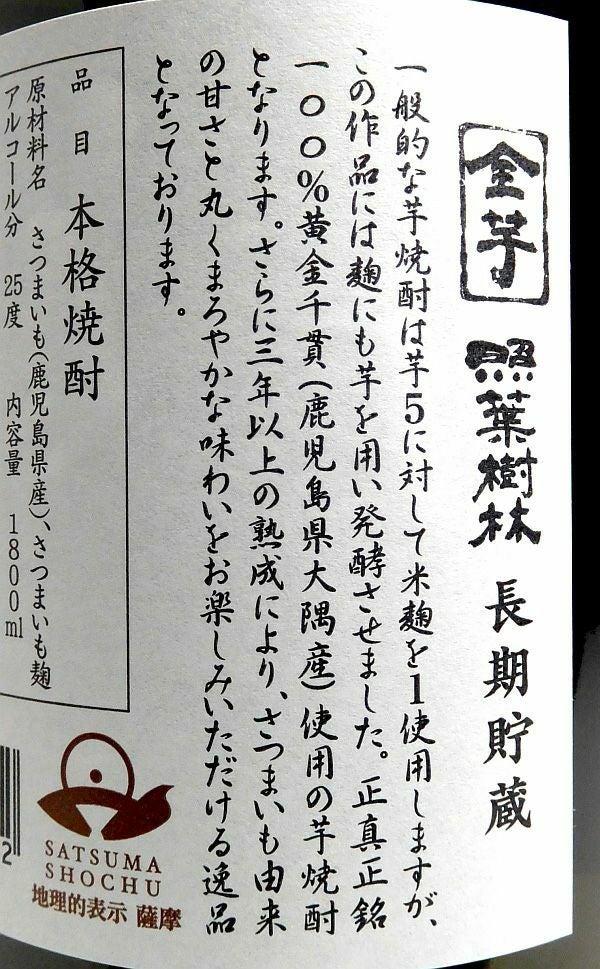 全芋 照葉樹林 長期貯蔵
一般的な芋焼酎は芋5に対して米麹を1使用しますが、
この作品には麹にも芋を用い発酵させました。正真正銘
一〇〇%黄金千貫(鹿児島県大隅産)使用の芋焼酎
となります。さらに三年以上の熟成により、さつまいも由来
の甘さと丸くまろやかな味わいをお楽しみいただける逸品
となっております。
品目 本格焼酎
原材料名 さつまいも(鹿児島県産)、さつまいも麹
アルコール分 25度 内容量 1800ml
SATSUMA
SHOCHU
地理的表示 薩摩
2